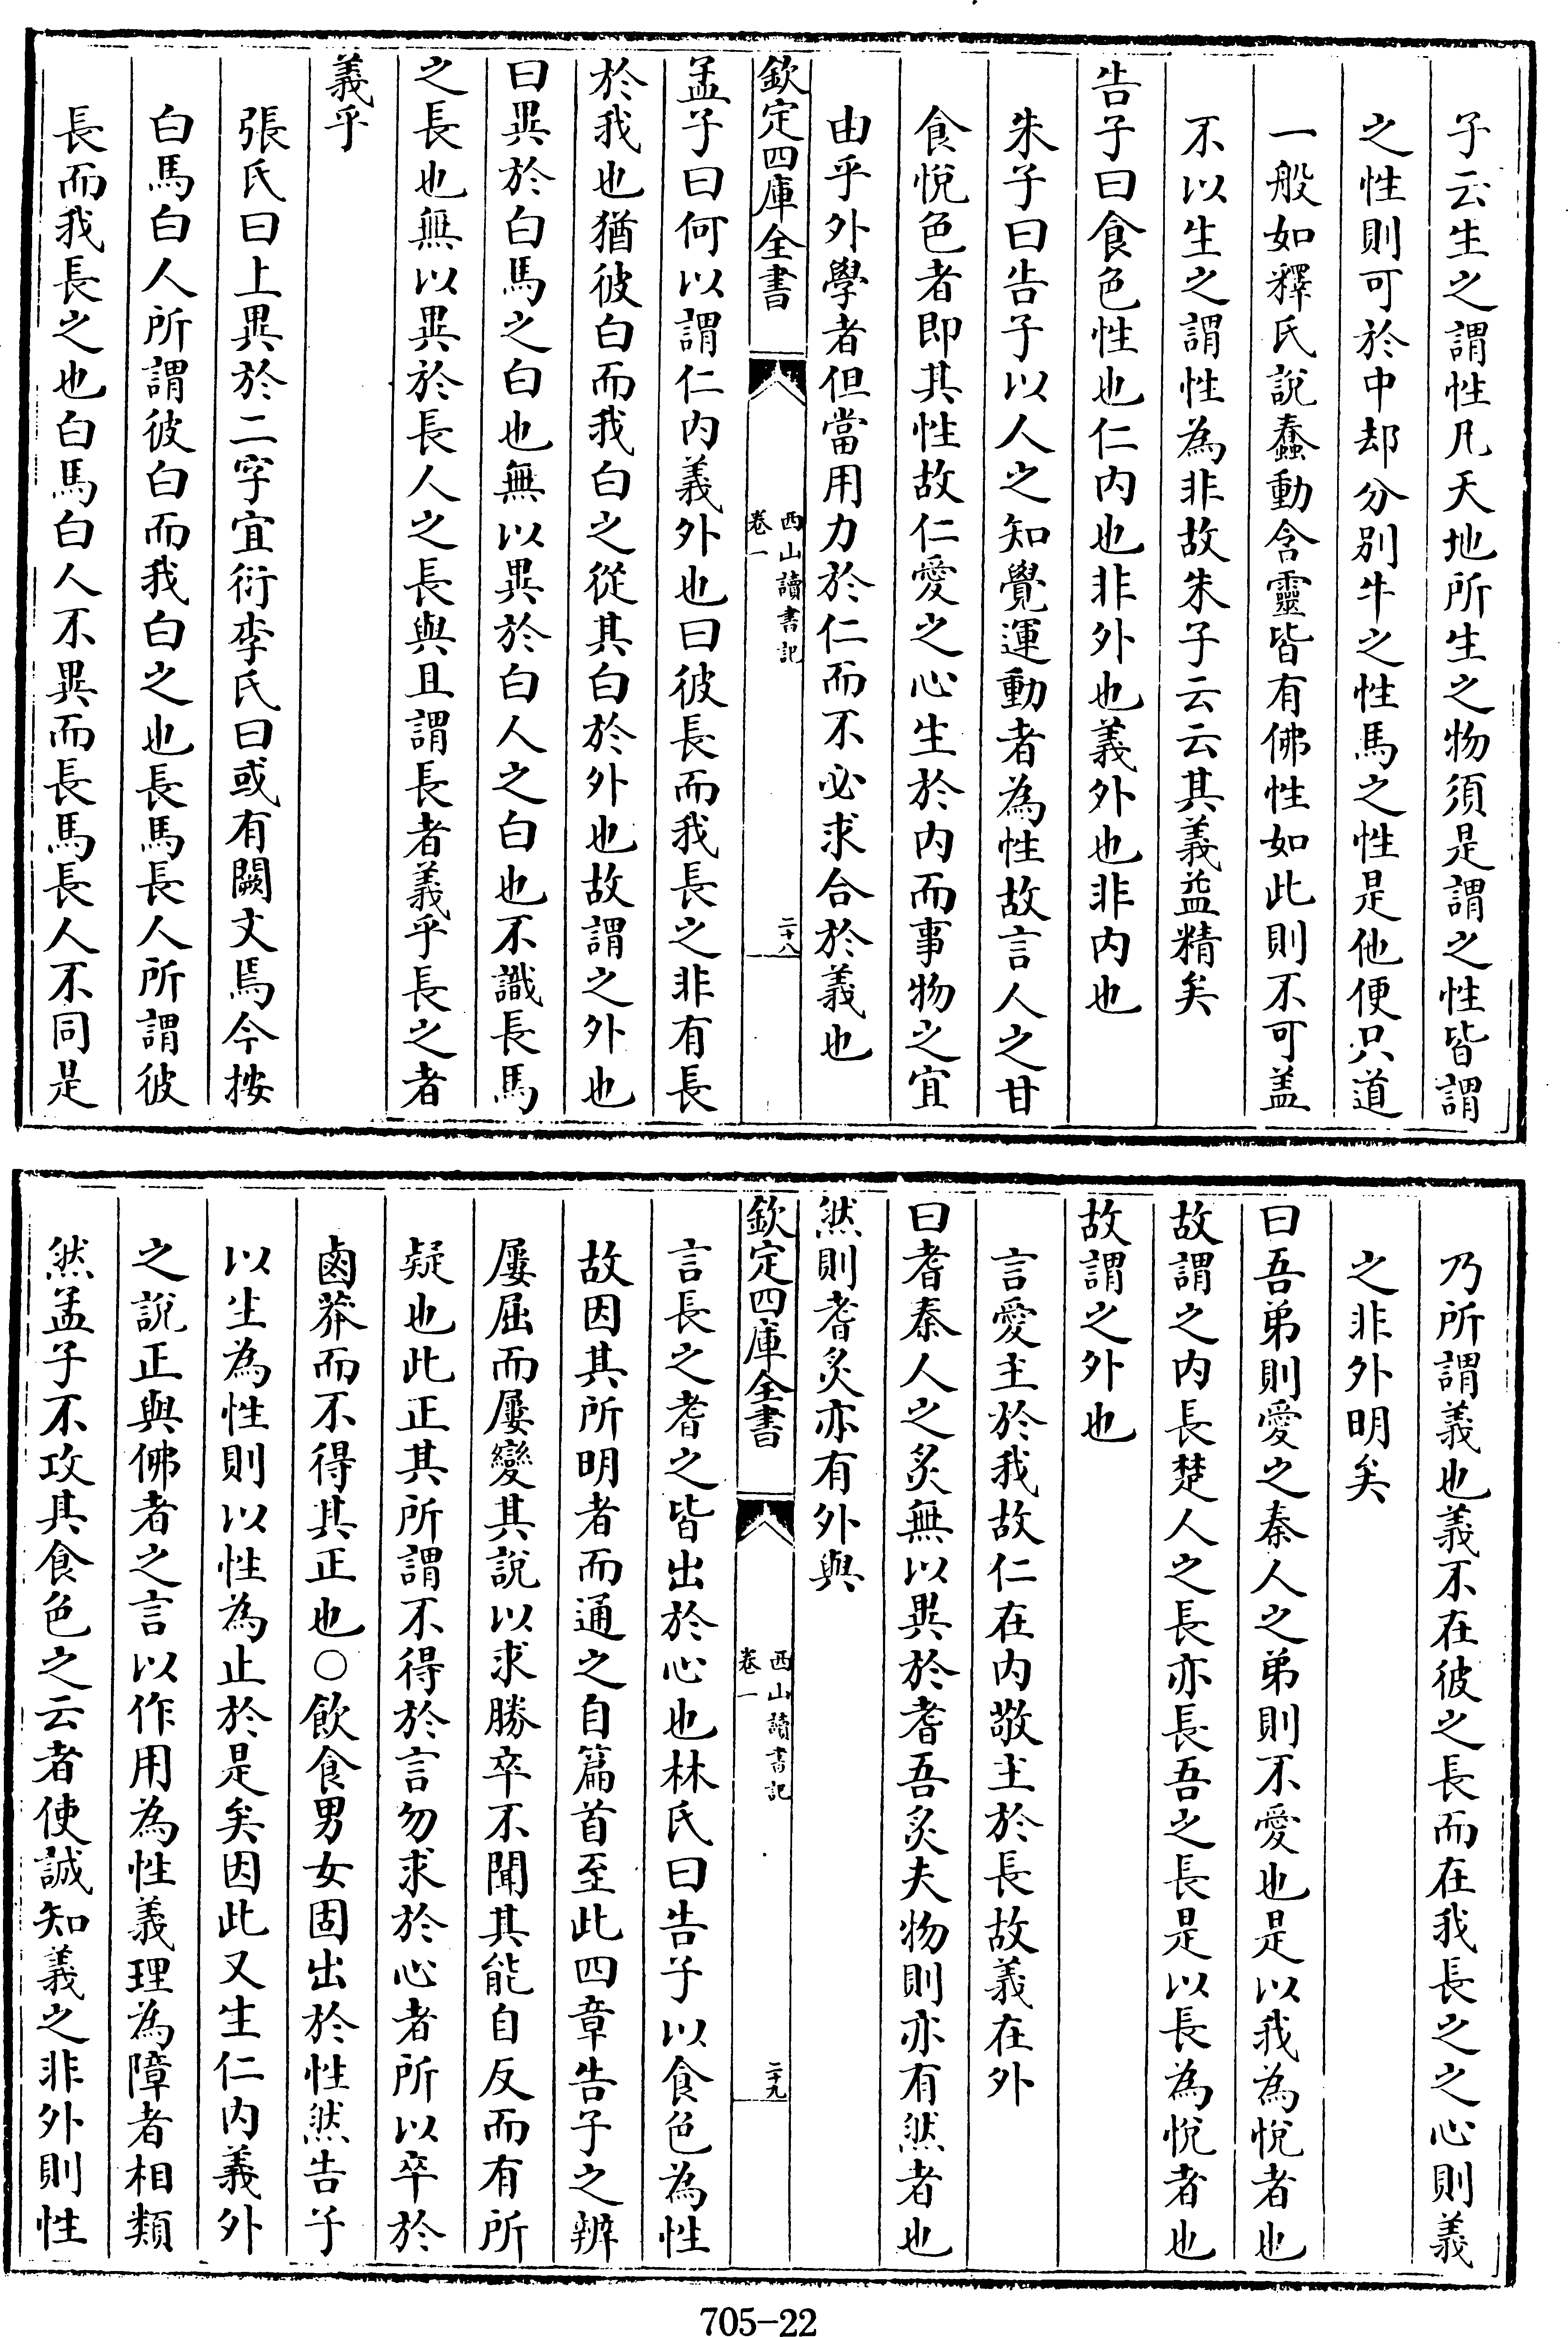 子云生之謂性凡天地所生之物須是謂之性皆謂
之性則可於中却分別牛之性馬之性是他便只道
一般如釋氏説蠢動含靈皆有佛性如此則不可盖
不以生之謂性為非故朱子云云其義益精矣
告子曰食色性也仁内也非外也義外也非内也
朱子曰告子以人之知覺運動者為性故言人之甘
食悦色者即其性故仁愛之心生於内而事物之宜
由乎外學者但當用力於仁而不必求合於義也
欽定四庫全書
西山讀書記
卷一
二十八
孟子曰何以謂仁内義外也曰彼長而我長之非有長
於我也猶彼白而我白之從其白於外也故謂之外也
曰異於白馬之白也無以異於白人之白也不識長馬
之長也無以異於長人之長與且謂長者義乎長之者
義乎
張氏曰上異於二字宜衍李氏曰或有闕文焉今按
白馬白人所謂彼白而我白之也長馬長人所謂彼
長而我長之也白馬白人不異而長馬長人不同是
乃所謂義也義不在彼之長而在我長之之心則義
之非外明矣
曰吾弟則愛之秦人之弟則不愛也是以我為悦者也
故謂之内長楚人之長亦長吾之長是以長為悦者也
故謂之外也
言愛主於我故仁在内敬主於長故義在外
曰耆秦人之炙無以異於耆吾炙夫物則亦有然者也
然則耆炙亦有外與
欽定四庫全書
西山讀書記
卷一
二十九
言長之耆之皆出於心也林氏曰告子以食色為性
故因其所明者而通之自篇首至此四章告子之辨
屢屈而屢變其説以求勝卒不聞其能自反而有所
疑也此正其所謂不得於言勿求於心者所以卒於
鹵莽而不得其正也○飲食男女固出於性然告子
以生為性則以性為止於是矣因此又生仁内義外
之説正與佛者之言以作用為性義理為障者相類
然孟子不攻其食色之云者使誠知義之非外則性
705-22